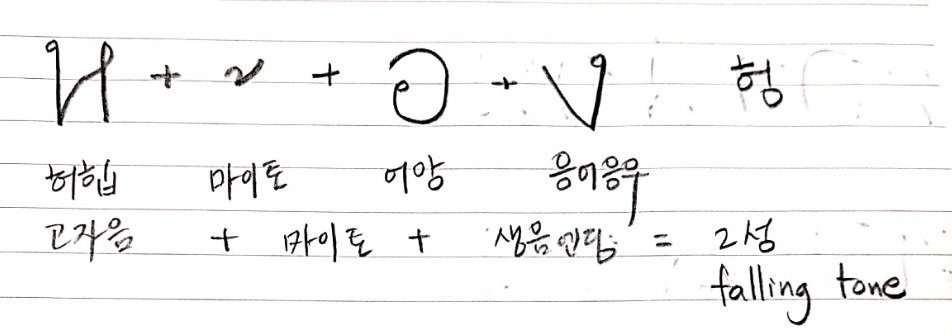 ห + ้ + อ + ง 헝
허힙 마이토 어앙 응어응우
고자음 + 마이토 + 생음엔딩 = 2성
falling tone